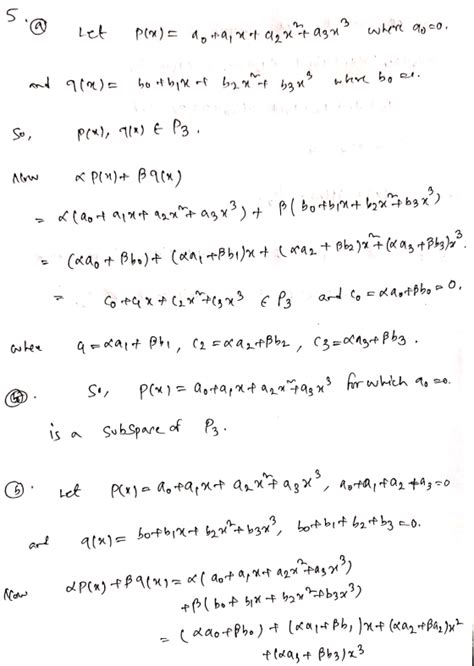 5.
(a) Let p(x) = a₀+a₁x+a₂x²+a₃x³ where a₀=0.
and q(x) = b₀+b₁x+b₂x²+b₃x³ where b₀=0.
So, p(x), q(x) ∈ P₃.
Now αp(x)+βq(x)
= α(a₀+a₁x+a₂x²+a₃x³) + β(b₀+b₁x+b₂x²+b₃x³)
= (αa₀+βb₀)+(αa₁+βb₁)x+(αa₂+βb₂)x²+(αa₃+βb₃)x³
= c₀+c₁x+c₂x²+c₃x³ ∈ P₃ and c₀=αa₀+βb₀=0.
where c₁=αa₁+βb₁, c₂=αa₂+βb₂, c₃=αa₃+βb₃.
So, p(x)=a₀+a₁x+a₂x²+a₃x³ for which a₀=0.
is a subspace of P₃.
(b). Let p(x)=a₀+a₁x+a₂x²+a₃x³, a₀+a₁+a₂+a₃=0
and q(x)=b₀+b₁x+b₂x²+b₃x³, b₀+b₁+b₂+b₃=0.
Now αp(x)+βq(x)=α(a₀+a₁x+a₂x²+a₃x³)
+β(b₀+b₁x+b₂x²+b₃x³)
=(αa₀+βb₀)+(αa₁+βb₁)x+(αa₂+βa₂)x²
+(αa₃+βb₃)x³